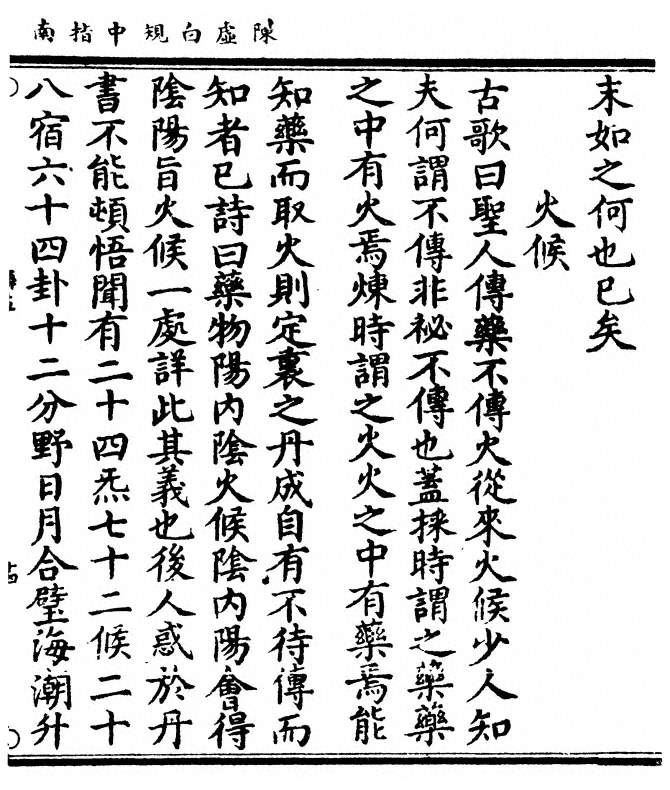 陳虛白規中指南
末如之何也已矣
火候
古歌曰聖人傳藥不傳火從來火候少人知
夫何謂不傳非祕不傳也蓋採時謂之藥藥
之中有火焉煉時謂之火火之中有藥焉能
知藥而取火則定裏之丹成自有不待傳而
知者已詩曰藥物陽內陰火候陰內陽會得
陰陽旨火候一處詳此其義也後人惑於丹
書不能頓悟聞有二十四炁七十二候二十
八宿六十四卦十二分野日月合璧海潮升